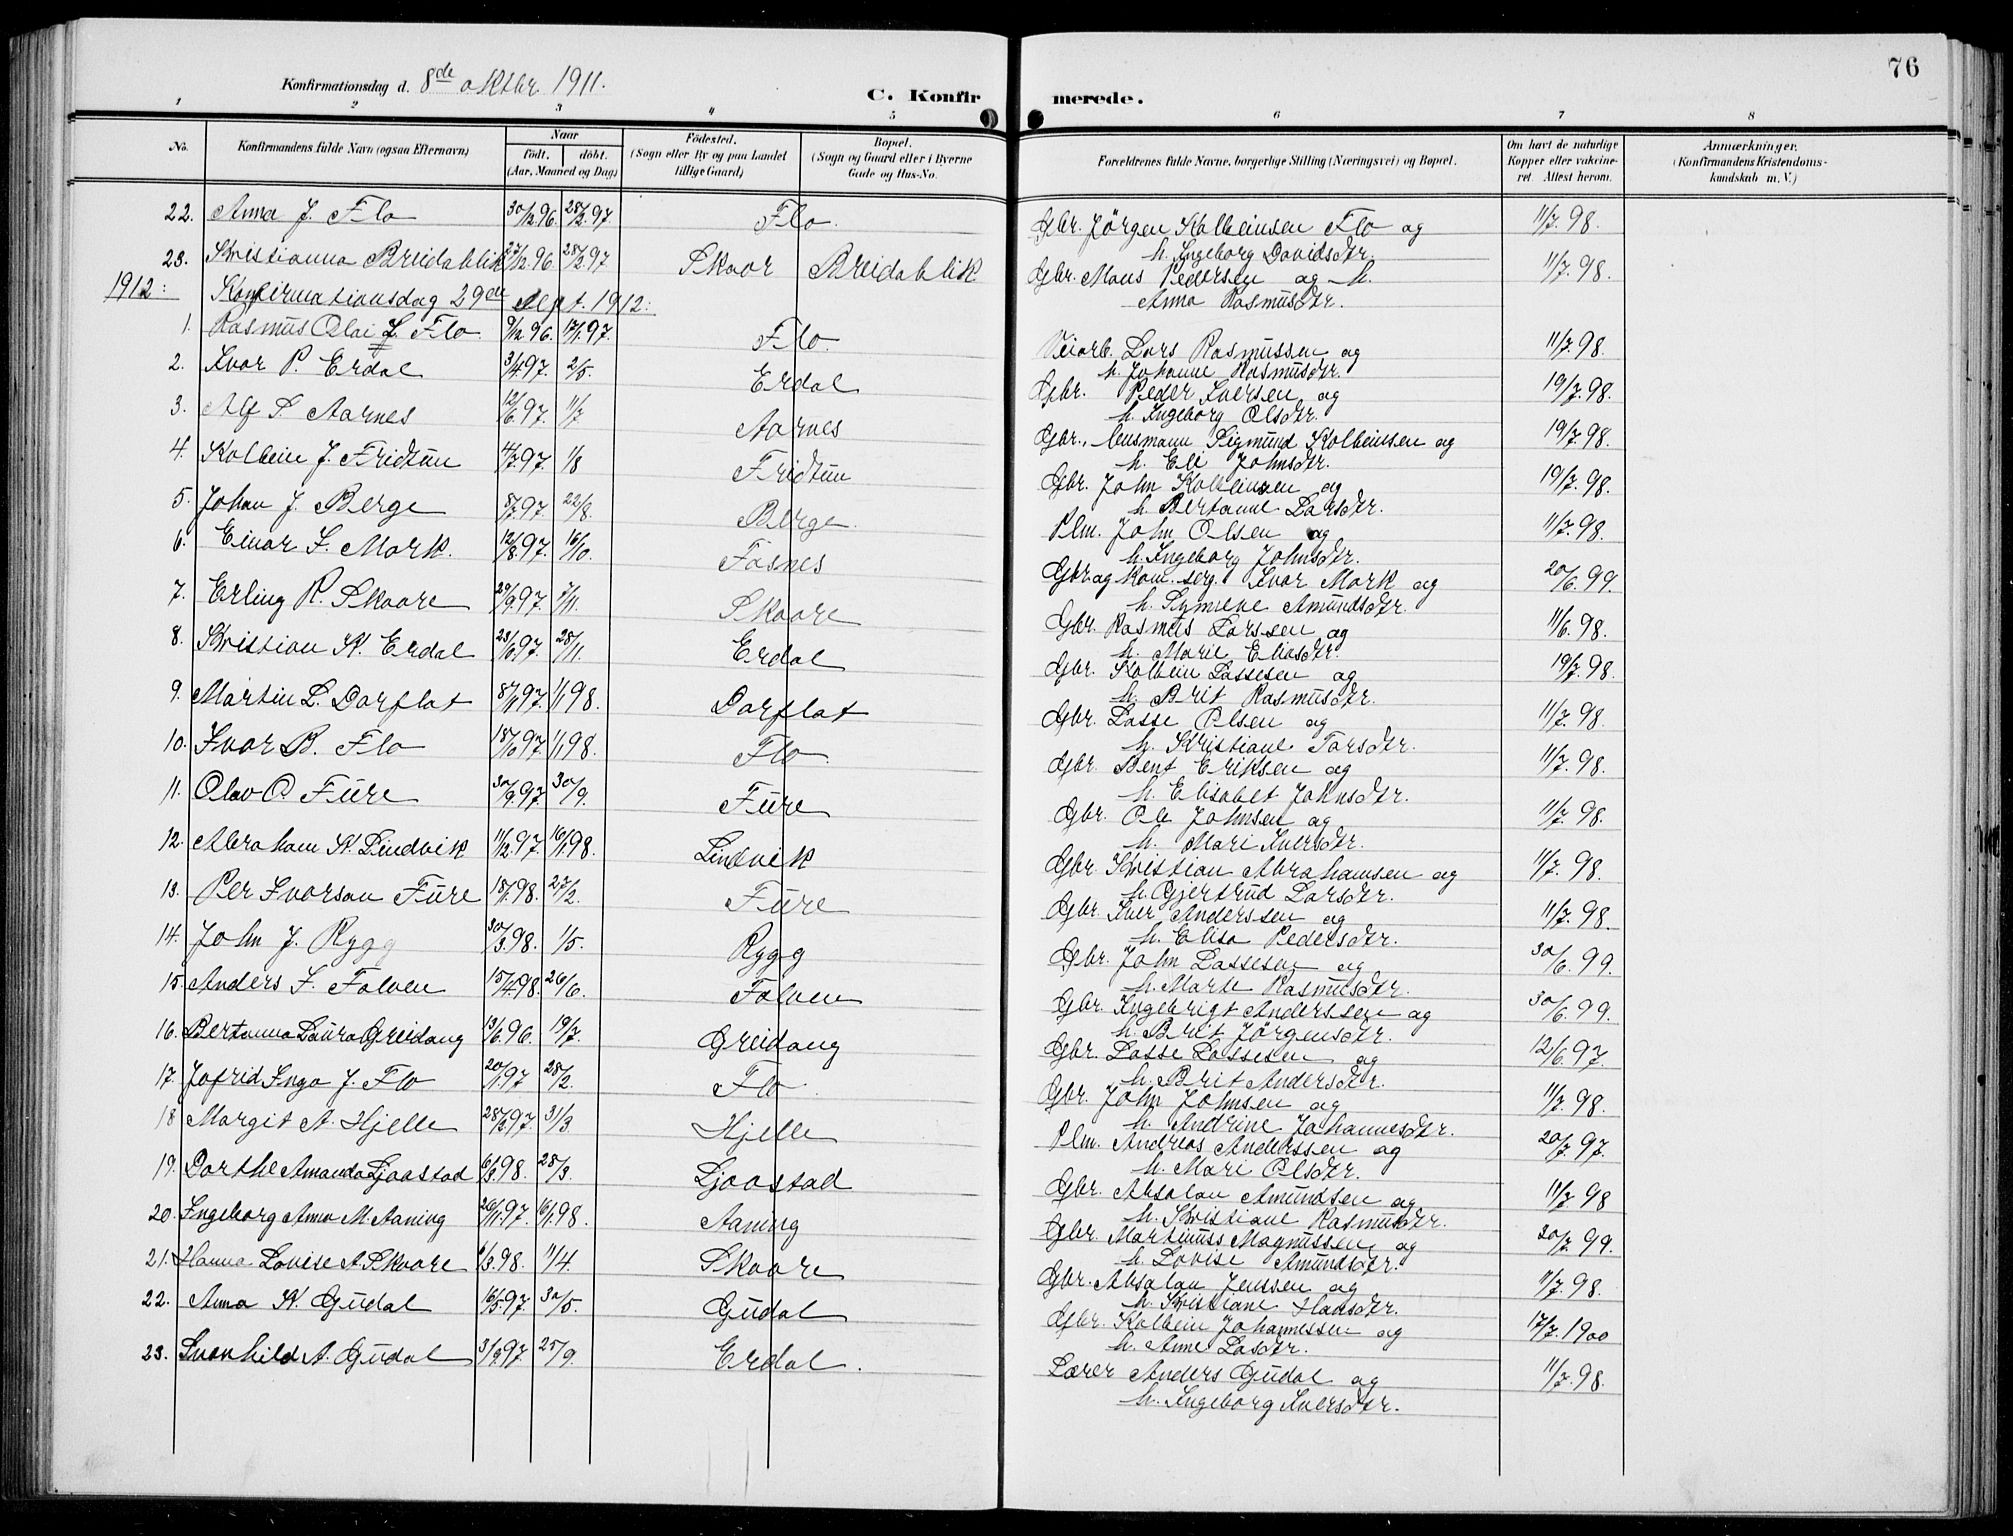 76
Konfirmationsdag d. 8de oktbr. 1911.
C. Konfirmerede.
1 2 3 4 5 6 7 8
No. Konfirmandens fulde Navn (ogsaa Efternavn) Naar födt. döbt. (Aar, Maaned og Dag) Födested. (Sogn eller By og paa Landet tillige Gaard) Bopæl. (Sogn og Gaard eller i Byerne Gade og Hus-No. Forældrenes fulde Navne, borgerlige Stilling (Næringsvei) og Bopæl. Om havt de naturlige Kopper eller vakcineret. Attest herom. Anmærkninger. (Konfirmandens Kristendomskundskab m. V.)
22. Anna J. Flo 30/12 96. 28/2 97 Flo. Gbr. Jörgen Kolbeinsen Flo og 11/7. 98.
h. Ingeborg Davidsdtr.
23. Kristianna Breidablik 27/12 96. 28/2 97 Skaar Breidablik Gbr. Mons Pedersen og h. 11/7. 98.
Anna Rasmusdtr.
1912: Konfirmationsdag 29de sept. 1912:
1. Rasmus Olai L. Flo 9/12 96. 17/1 97. Flo. Veiarb. Lars Rasmussen og 11/7. 98.
h. Johanne Rasmusdtr.
2. Ivar P. Erdal 3/4 97. 2/5. Erdal Gbr. Peder Iversen og 19/7. 98.
h. Ingeborg Olsdtr.
3. Alf S. Aarnes 12/6 97. 11/7 Aarnes Gbr., lensmann Sigmund Kolbeinssen og 19/7 98.
h. Eli Johnsdtr.
4. Kolbein J. Fridtun 4/7 97. 1/8 Fridtun Gbr. John Kolbeinsen og 19/7. 98.
h. Bertanne Larsdtr.
5. Johan J. Berge 8/7 97. 22/8. Berge. Plm. John Olsen og 11/7. 98.
h. Ingeborg Johnsdtr.
6. Einar I. Mork. 12/8 97. 16/10. Fosnes Gbr. og kom. serg. Ivar Mork og 20/6. 99.
h. Synneve Amundsdtr.
7. Erling R. Skaare 29/9 97. 7/11. Skaare Gbr. Rasmus Larssen og 11/6. 98.
h. Marie Eliasdtr.
8. Kristian K. Erdal 28/11. Erdal Gbr. Kolbein Lassesen og 19/7. 98.
h. Brit Rasmusdtr.
9. Martin L. Dorflat 8/11 97. 1/1 98. Dorflat Gbr. Lasse Olsen og 11/7. 98.
h. Kristiane Tarsdtr.
10. Ivar B. Flo 1/1 98. Flo Gbr. Bent Eriksen og 11/7. 98.
h. Elisabet Johnsdtr.
11. Olav O. Füre 30/9. Füre Gbr. Ole Johnsen og 11/7. 98.
h. Mari Iversdtr.
12. Abraham K. Lindvik 11/12 97. 16/1 98. Lindvik Gbr. Kristian Abrahamsen og 11/7. 98.
h. Gjertrud Larsdtr.
13. Per Ivarson Füre 18/1 98. 27/2. Füre Gbr. Iver Anderssen og 11/7. 98.
h. Elisa Pedersdtr.
14. John J. Rygg 30/3. 98. 1/5. Rygg Gbr. John Lassesen og 30/6. 99.
h. Marte Rasmusdtr.
15. Anders I. Folven 15/4 98. 26/6. Folven Gbr. Ingebrigt Anderssen og 30/6. 99.
h. Brit Jörgensdtr.
16. Bertanna Laura Greidang 13/6. 96. 19/7. Greidang Gbr. Lasse Lassesen og 12/6 97.
h. Brit Andersdtr.
17. Jofrid Inga J. Flo 20/1 97 28/2. Flo Gbr. John Johnsen og 11/7. 98.
h. Andrine Johannesdtr.
18 Margit A. Hjelle 28/2 97. 31/3 Hjelle Plm. Andreas Anderssen og 20/7. 97.
h. Mari Olsdtr.
19. Dorthe Amanda Ljoostad 6/3 98. 28/3. Ljoostad Gbr. Absalon Amundsen og 11/7 98
h. Kristiane Rasmusdtr.
20. Ingeborg Anna M. Aaning 20/11 97. 16/1 98. Aaning Gbr. Martinuss Magnussen og 30/7 99.
h. Lovise Amundsdtr.
21. Hanna Lovise A. Skaare 6/3 98. 11/4. Skaare Gbr. Absalon Jenssen og 11/7. 98.
h. Kristiane Hansdtr.
22. Anna K. Gudal 16/5 97. 30/5. Gudal Gbr. Kolbein Johannessen og 17/7. 1900
h. Anne Lasdtr.
23. Svanhild A. Gudal 3/9 97. 25/9. Erdal. Lærer Anders Gudal og 11/7. 98.
h. Ingeborg Iversdtr.